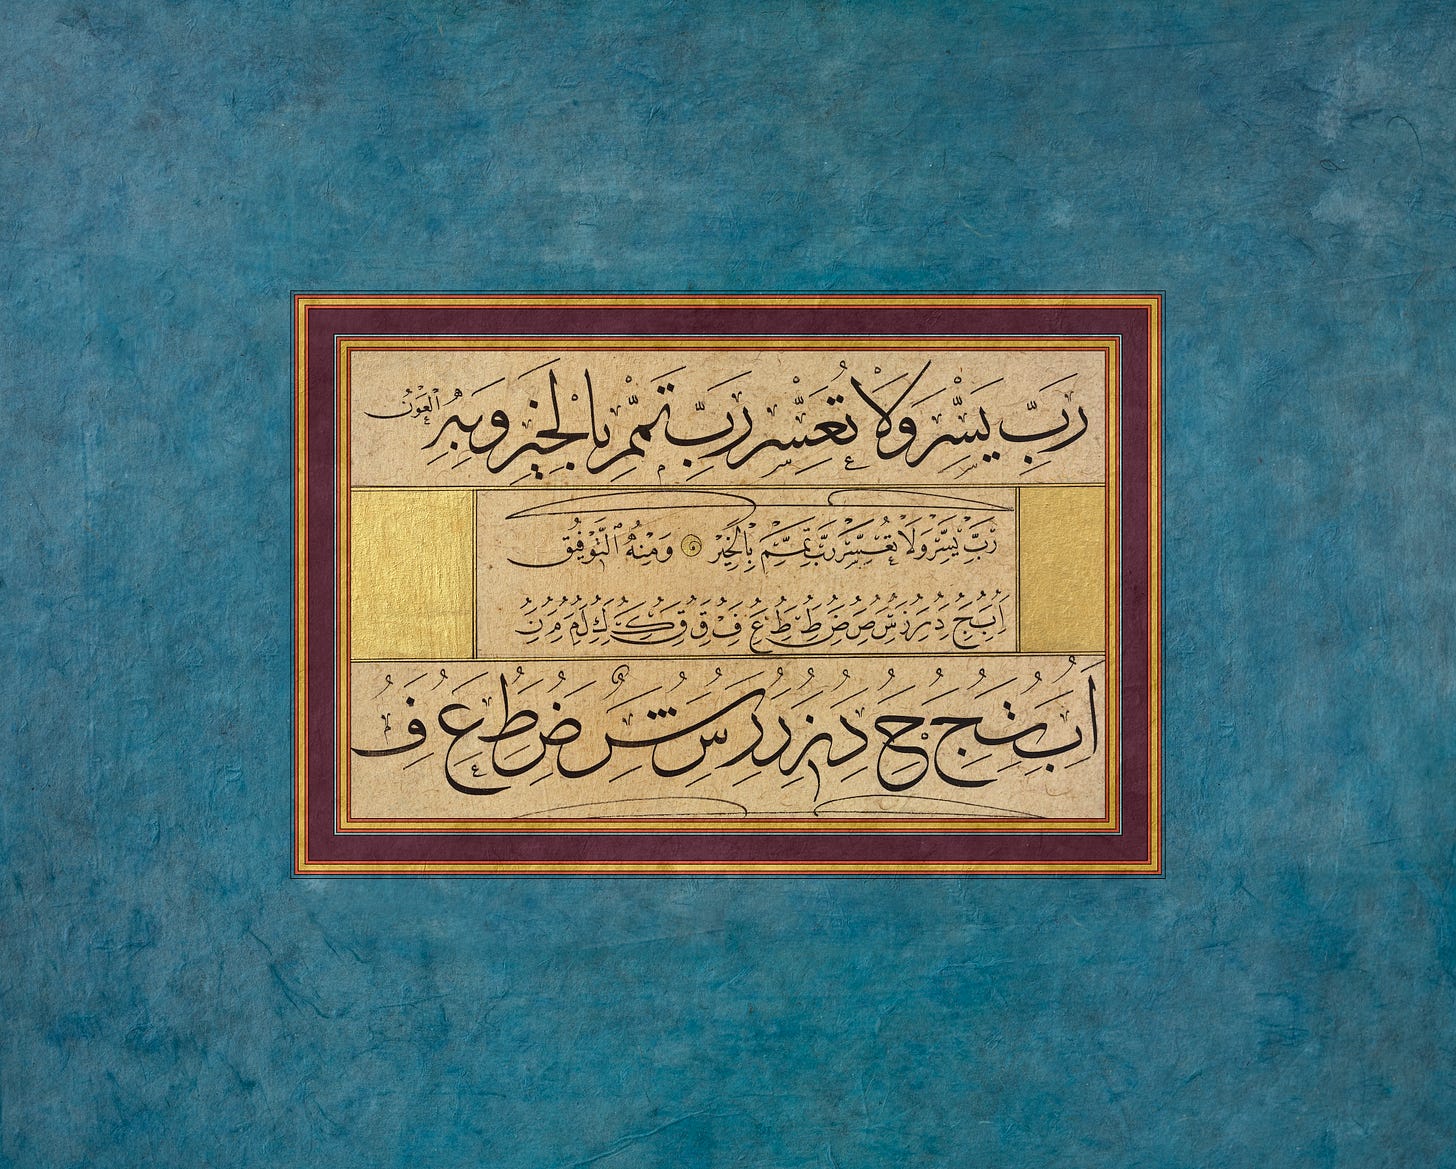 رَبِّ يَسِّرْ وَلَا تُعَسِّرْ رَبِّ تَمِّمْ بِالْخَيْرِ وَبِهِ الْعَوْنُ
رَبِّ يَسِّرْ وَلَا تُعَسِّرْ رَبِّ تَمِّمْ بِالْخَيْرِ وَمِنْهُ التَّوْفِيقُ
ا ب ج د ر ز س ص ض ط ط ع ف ق ق ك ك ل م م ن
ا ب تج ح د ز ر ر س ش ض ط ع ف